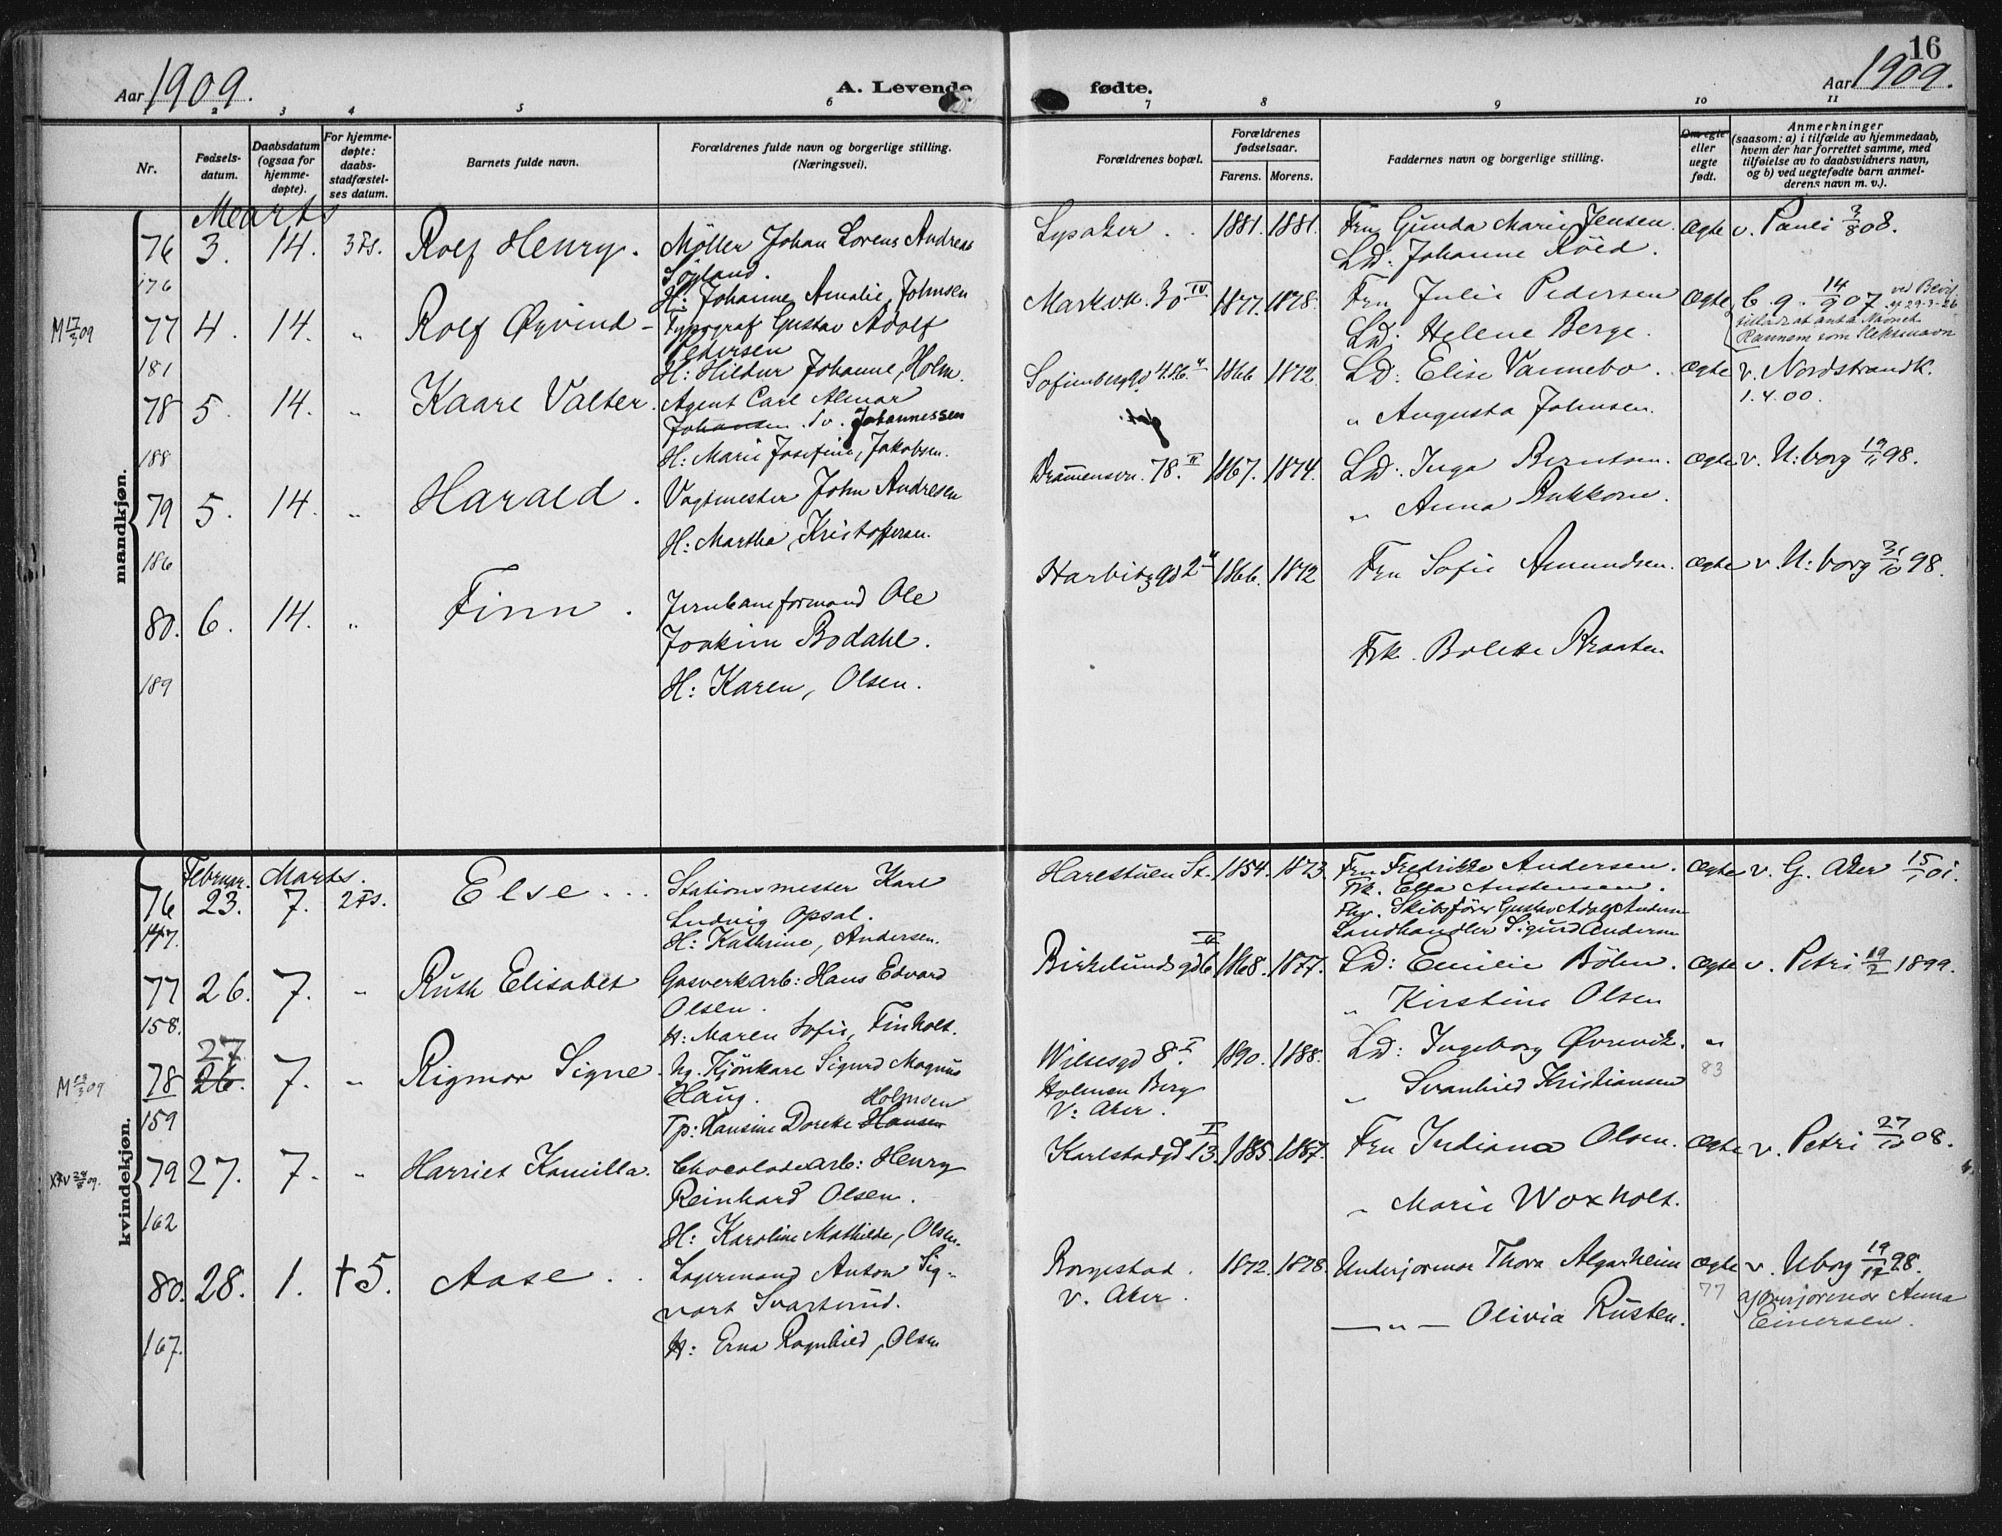 16
Aar 1909.
A. Levende
fødte.
Aar 1909.
1 2 3 4 5 6 7 8 9 10 11
Nr.
Fødsels-
datum.
Daabsdatum
(ogsaa for
hjemme-
døpte).
For hjemme-
døpte:
daabs-
stadfæstel-
ses datum.
Barnets fulde navn.
Forældrenes fulde navn og borgerlige stilling.
(Næringsvei).
Forældrenes bopæl.
Forældrenes
fødselsaar.
Farens. Morens.
Faddernes navn og borgerlige stilling.
Om egte
eller
uegte
født.
Anmerkninger
(saasom: a) i tilfælde av hjemmedaab,
hvem der har forrettet samme, med
tilføielse av to daabsvidners navn,
og b) ved uegtefødte barn anmel-
derens navn m. v.).
mandkjøn.
Marts
76 3. 14. 3 Fs. Rolf Henry. Møller Johan Lorens Andreas
176
H: Johanne Amalie, Johnsen
Lysaker . . 1881. 1881. Fru Gunda Marie Jensen. Ægte v. Pauli 3/8 08.
Ld: Johanne Röed.
M 17/3 09
77 4. 14. " Rolf Øyvind - Typograf Gustav Adolf
Pedersen
181
H: Hildur Johanne, Holm.
Markvn. 30 IV 1877. 1878. Fru Julie Pedersen Ægte b. g. 14/9 07
Ld: Helene Berge.
78 5. 14. " Kaare Valter. Agent Carl Almar
Johansen. Sv. Johannessen
188
H: Marie Josefine, Jakobsen.
1866 1872. Ld: Elise Vannebo. Ægte v. Nordstrandk.
" Augusta Johnsen. 1.4.00.
79 5. 14. " Harald. Vagtmester John Andresen
186
H: Martha, Kristoffersen.
Drammensvn. 78. II 1867. 1874. Ld: Inga Berntsen. Ægte v. U:borg 19/11 98.
" Anna
80. 6. 14. " Finn. Jernbaneformand Ole
Joakim Bodahl.
189
H: Karen, Olsen.
Harbitzgd 2 1866. 1872 Fru Sofie Amundsen. Ægte v. U:borg 31/10 98.
Frk. Bolette Braaten
kvindekjøn.
Februar. Marts.
76 23. 7. 2 Fs. Else . . . Stationsmester Karl
Ludvig Opsal.
H: Kathrine, Andersen.
Harestuen St. 1854. 1873. Fru Fredrikke Andersen. Ægte v. G. Aker 15/1 01.
Frk. Ella Austensen.
Skibsfører Gustav Adolf Andersen
Landhandler Sigurd Andersen
77 26. 7. " Ruth Elisabet Gasverkarb: Hans Edvard
158.
Olsen.
H: Maren Sofie, Finholt.
Birkelundsgd 6 II 1868. 1877. Ld: Emilie Böhn. Ægte v. Petri 19/2 1899.
" Kirstine Olsen
M 13/3 09
27
78 26. 7. " Rigmor Signe. Ug. Kjörekarl Sigurd Magnus
159
Haug. Holmsen
Tp: Hansine Dorthe Hansen
Wilsesgd 8. I 1890. 1888. Ld: Ingeborg Øvrevik. "
Holmen Berg " Svanhild Kristiansen 83
V: Aker.
79 27. 7. " Harriet Kamilla. Chocoladearb: Henry
Reinhard Olsen.
162
H: Karoline Mathilde, Olsen.
Karlstadgd 13. I 1885. 1887. Fru Indiana Olsen. Ægte v. Petri 27/10 08.
" Marie Woxholt.
80. 28. 1. † 5. Aase . . Lagermand Anton Sig-
vart Svartsrud.
167.
H: Erna Ragnhild, Olsen
Borgestad. 1872. 1878. Underjormor Thora Algarheim Ægte v. Uborg 19/12 98.
V. Aker. — " — Olivia Rusten. 77 Overjormor Anna
Einersen.